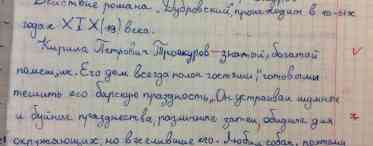 Действие романа „Дубровский" происходит в 10-ых
годах XIX(19) века.
Кирила Петрович Троекуров – знатный, богатый
помещик. Его дом всегда полон гостями, „готовыми
тешить его барскую праздность". Он устраивал шумные
и буйные празднества, различные затеи, обидные для
окружающих, но веселившие его. Любил собак, поэтому